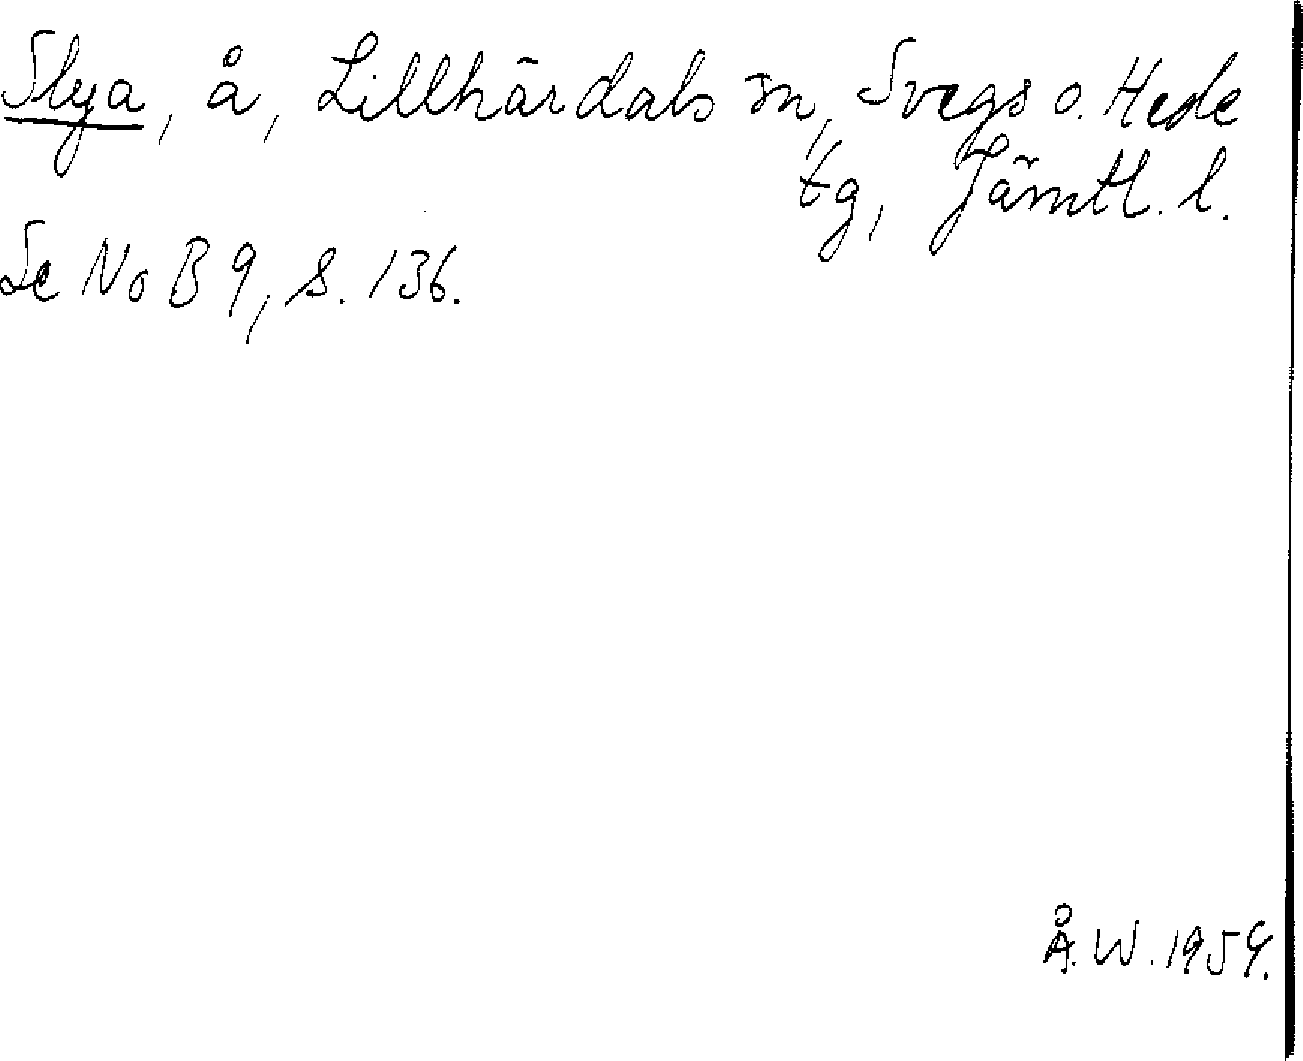 Slya, å, Lillhärdals sn, Svegs o. Hede
tg, Jämtl. l.
Se NoB 9, s. 136.
Å.W. 1959.